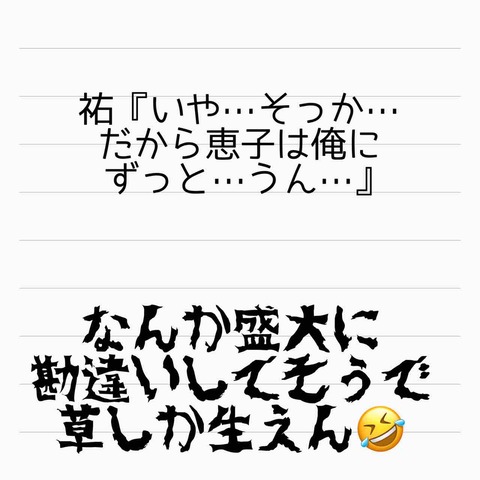 祐『いや…そっか…
だから恵子は俺に
ずっと…うん…』
なんか盛大に
勘違いしてそうで
草しか生えん🤣